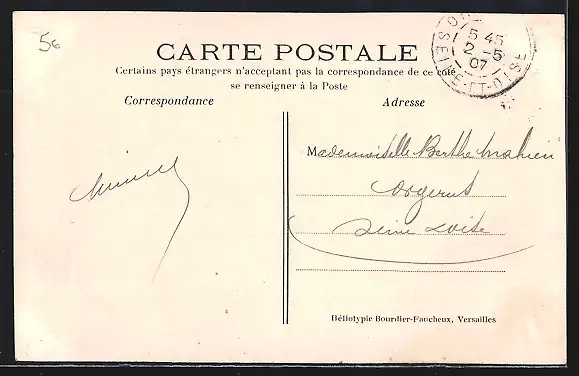 5€
CARTE POSTALE
Certains pays étrangers n'acceptant pas la correspondance de ce côté
se renseigner à la Poste
5 45
2 - 5
07
SEINE-ET-OISE
Correspondance
Adresse
Mademoiselle Berthe Mahieu
Seine & Oise
Héliotypie Bourdier-Faucheux, Versailles